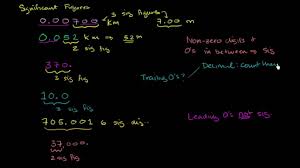 Significant Figures
3 sig figures
0.00700 km 7.00 m
0.052 km ⇒ 52 m
2 sig fig
Non-zero digits +
0's in between ⇒ sig
370.
3 sig fig
Trailing 0's?
Decimal: count them
10.0
3 sig fig
705.001 6 sig
Leading 0's not sig
37,000.
2 sig fig